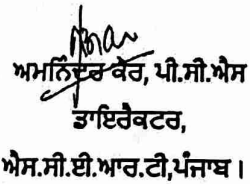 ਅਮਨਿੰਦਰ ਕੌਰ, ਪੀ.ਸੀ.ਐਸ
ਡਾਇਰੈਕਟਰ,
ਐਸ.ਸੀ.ਈ.ਆਰ.ਟੀ,ਪੰਜਾਬ।